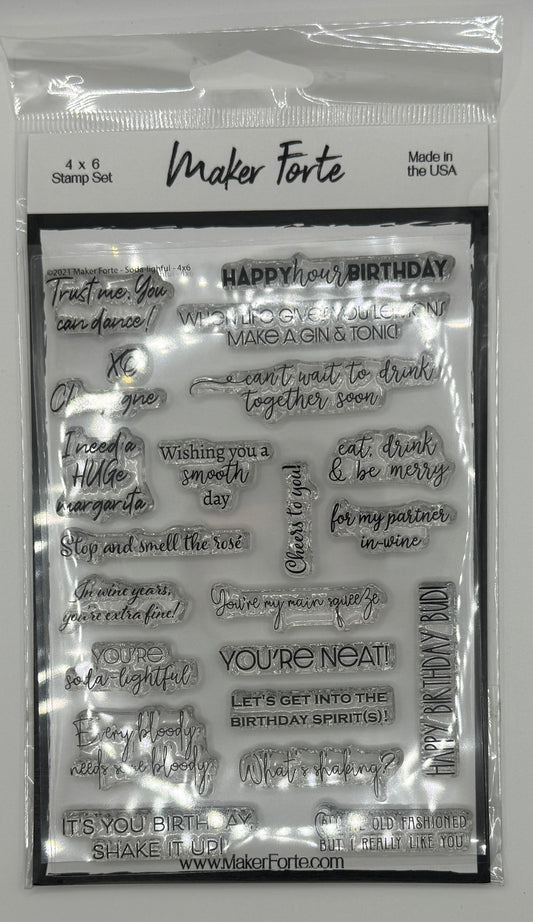 4 x 6
Stamp Set
Maker Forte
Made in
the USA
©2021 Maker Forte - Soda-lighful - 4x6
Trust me, You
can dance!
HAPPY hour BIRTHDAY
WHEN LIFE GIVES YOU LEMONS
MAKE A GIN & TONIC!
XO
Champagne
can't wait to drink
together soon
I need a
HUGE
margarita
Wishing you a
smooth
day
Cheers to you!
eat, drink
& be merry
for my partner
in-wine
Stop and smell the rosé
In wine years,
you're extra fine!
You're my main squeeze
HAPPY BIRTHDAY BUD!
YOU'RE
soda-lightful
YOU'RE NEAT!
LET'S GET INTO THE
BIRTHDAY SPIRIT(S)!
Every bloody
needs some bloody
What's shaking?
IT'S YOU BIRTHDAY,
SHAKE IT UP!
CALL ME OLD FASHIONED
BUT I REALLY LIKE YOU
www.MakerForte.com